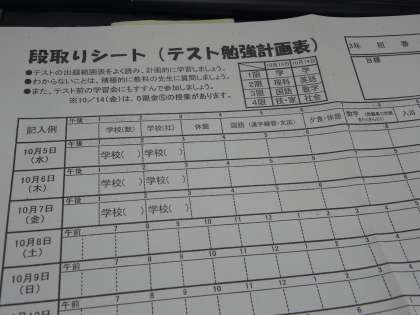 段取りシート（テスト勉強計画表）
3年 組 番
●テストの出題範囲表をよく読み、計画的に学習しましょう。
●わからないことは、積極的に教科の先生に質問しましょう。
●また、テスト前の学習会にもすすんで参加しましょう。
※10／14(金)は、6限金⑤の授業があります。
10月13日 10月14日
1限 学 学
2限 理科 英語
3限 国語 数学
4限 技・家 社会
目標
記入例 午後 学校(数) 学校(社) 休憩 国語（漢字練習・文法） 夕食・休憩 数学 入浴
10月5日
（水） 午後 学校( ) 学校( )
10月6日
（木） 午後 学校( ) 学校( )
10月7日
（金） 午後 学校( ) 学校( )
10月8日
（土） 午前 7 8 9 10 11 12 1 2 3
10月9日
（日） 午前 7 8 9 10 11 12 1 2
午前 7 8 9 10 11 12